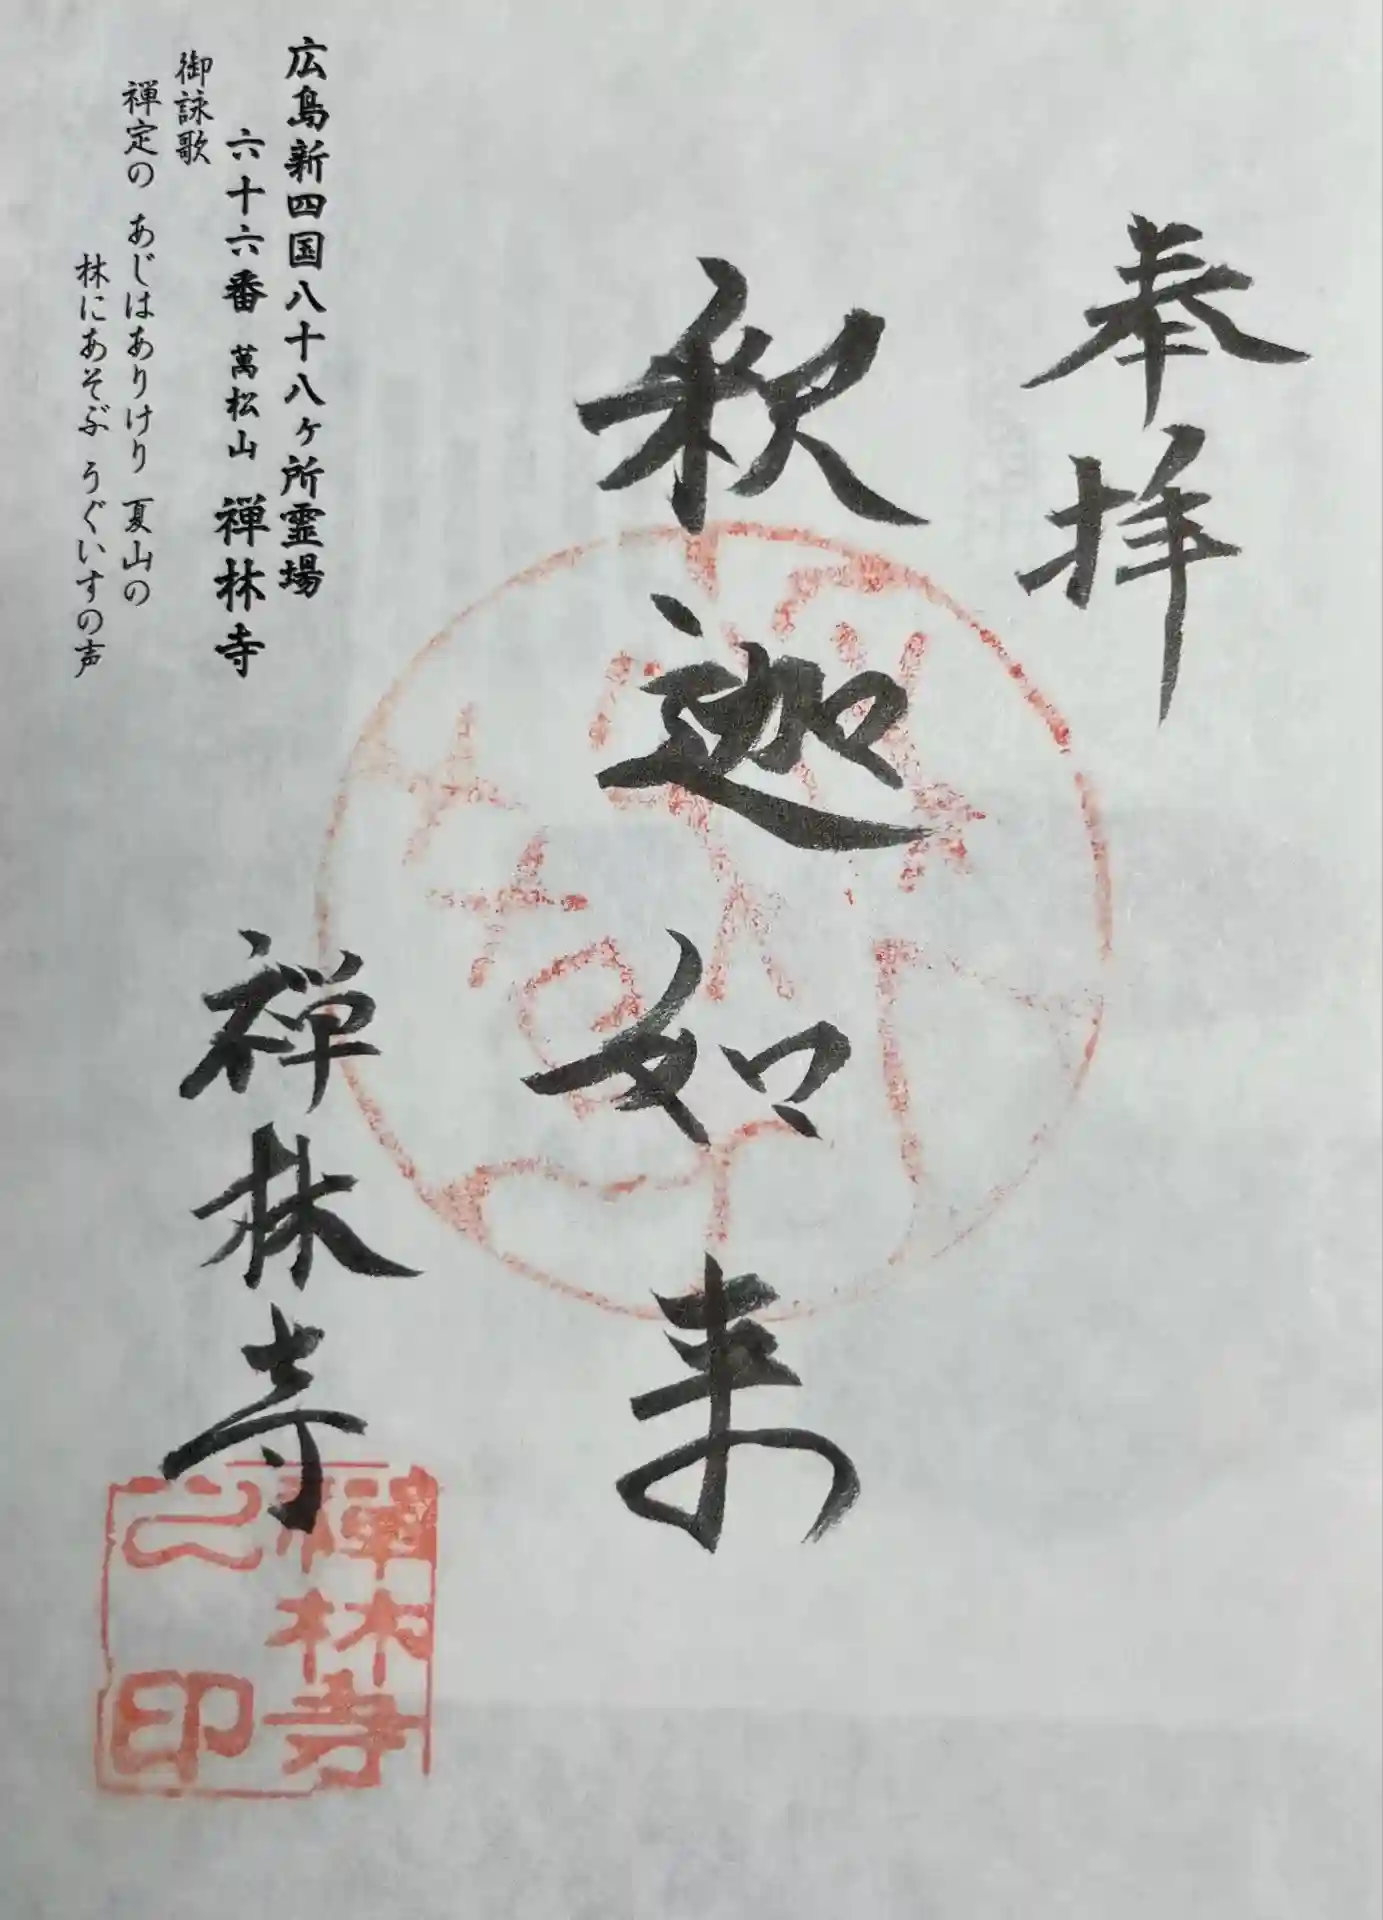 奉拝
釈迦如来
広島新四国八十八ヶ所霊場
六十六番 萬松山 禅林寺
御詠歌
禅定の あじはありけり 夏山の
林にあそぶ うぐいすの声
禅林寺
禅林寺
之印